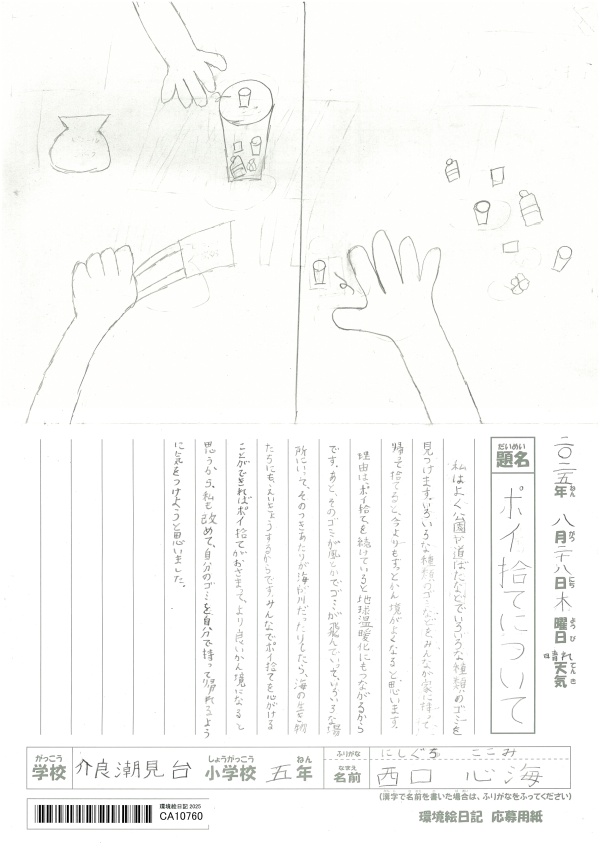 二〇二五年 八月二十八日 木曜日 晴れ 天気
ねん がつ にち ようび てんき
だいめい
題名
ポイ捨てについて
私はよく公園や道ばたなどでいろいろな種類のゴミを
見つけます。いろいろな種類のゴミなどをみんなが家に持って
帰って捨てると、今よりもずっとかん境がよくなると思います。
理由は、ポイ捨てを続けていると地球温暖化にもつながるから
です。あと、そのゴミが風とかでゴミが飛んでいって、いろいろな場
所にいって、そのつきあたりが海か川だったりしたら、海の生き物
たちにも、えいきょうするからです。みんなでポイ捨てを心がける
ことができればポイ捨てがおさまって、より良いかん境になると
思うから、私も改めて、自分のゴミを自分で持って帰れるよう
に気をつけようと思いました。
がっこう
学校
介良潮見台
しょうがっこう
小学校
五
ねん
年
ふりがな
にしぐち ここみ
なまえ
名前
西口 心海
(漢字で名前を書いた場合は、ふりがなをふってください)
環境絵日記 2025
CA10760
環境絵日記 応募用紙